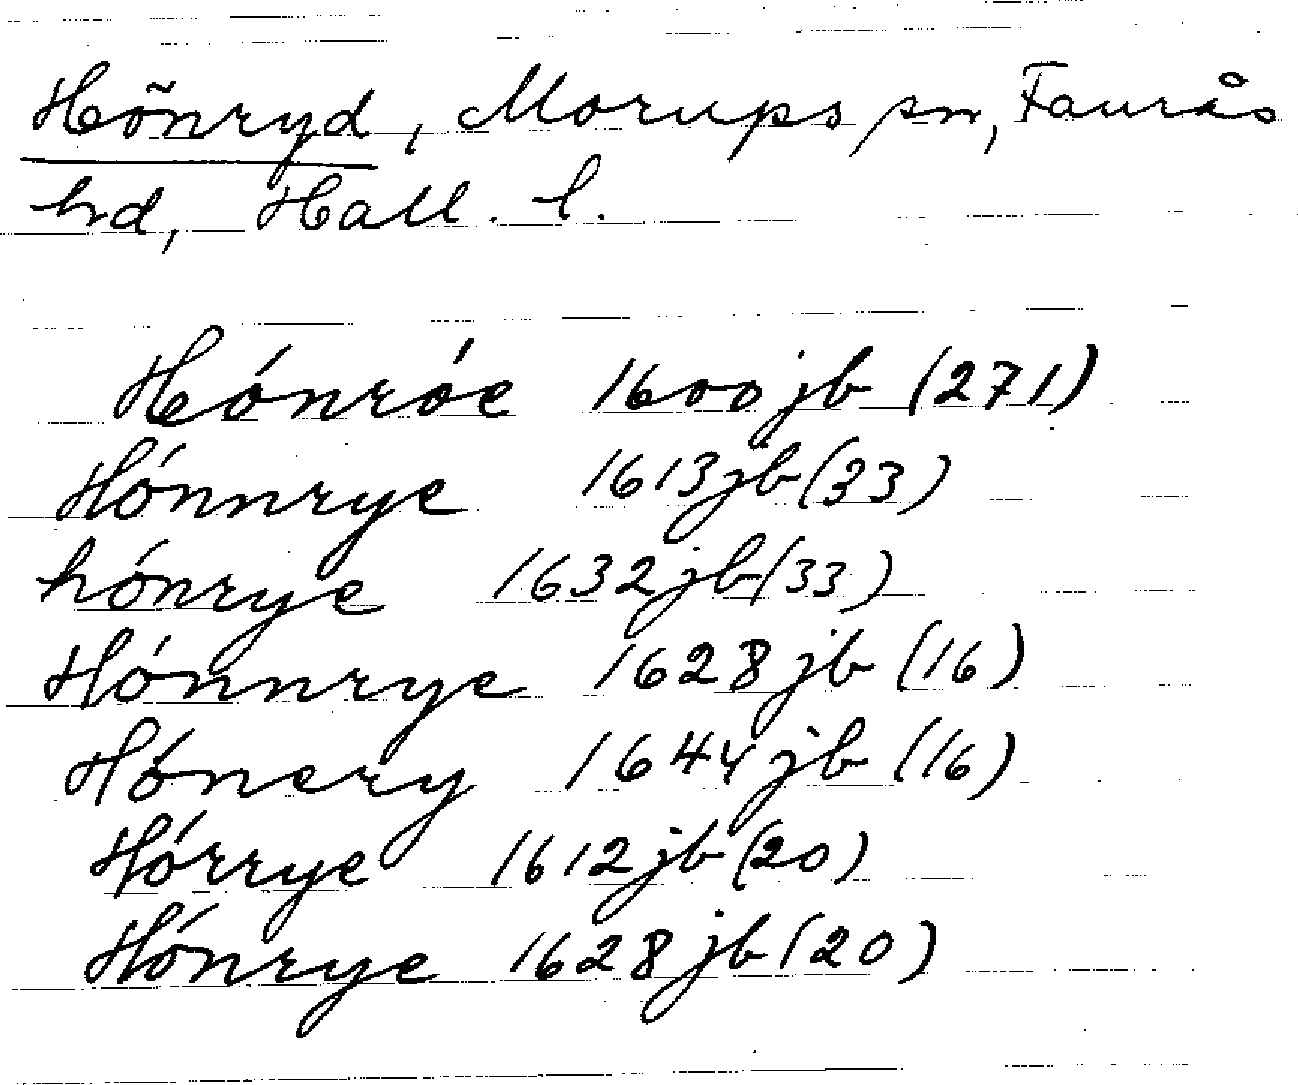 Hõnryd, Morups sn, Faurås
hd, Hall. l.
Hónróe 1600 jb (271)
Hónnrye 1613 jb (33)
hónrye 1632 jb (33)
Hónnrye 1628 jb (16)
Hónery 1644 jb (16)
Hórrye 1612 jb (20)
Hónrye 1628 jb (20)